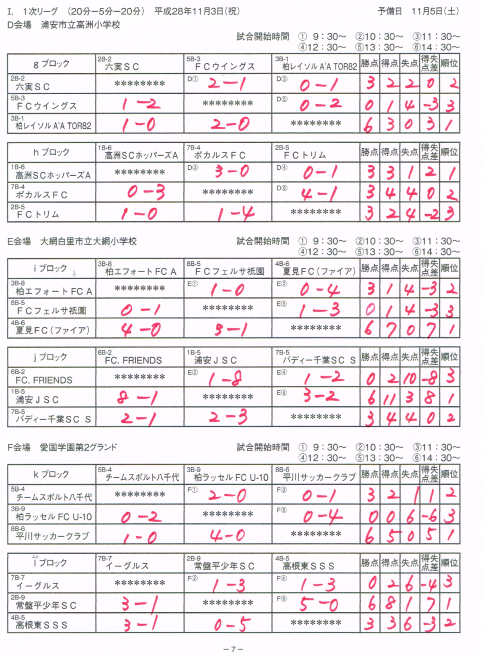 I. 1次リーグ (20分ー5分ー20分) 平成28年11月3日(祝) 予備日 11月5日(土)
D会場 浦安市立高洲小学校
試合開始時間 ① 9:30～ ②10:30～ ③11:30～
④12:30～ ⑤13:30～ ⑥14:30～
gブロック 2B-2 六実SC 5B-3 FCウイングス 3B-1 柏レイソルA'A TOR82 勝点 得点 失点 得失点差 順位
2B-2 六実SC ******** D① 2-1 D③ 0-1 3 2 2 0 2
5B-3 FCウイングス 1-2 ******** D⑤ 0-2 0 1 4 -3 3
3B-1 柏レイソルA'A TOR82 1-0 2-0 ******** 6 3 0 3 1
hブロック 1B-6 高洲SCホッパーズA 7B-4 ボカルスFC 2B-5 FCトリム 勝点 得点 失点 得失点差 順位
1B-6 高洲SCホッパーズA ******** D② 3-0 D④ 0-1 3 3 1 2 1
7B-4 ボカルスFC 0-3 ******** D⑥ 4-1 3 4 4 0 2
2B-5 FCトリム 1-0 1-4 ******** 3 2 4 -2 3
E会場 大網白里市立大網小学校 試合開始時間 ① 9:30～ ②10:30～ ③11:30～
④12:30～ ⑤13:30～ ⑥14:30～
iブロック 3B-8 柏エフォートFC A 8B-5 FCフェルサ祇園 4B-6 夏見FC(ファイア) 勝点 得点 失点 得失点差 順位
3B-8 柏エフォートFC A ******** E① 1-0 E③ 0-4 3 1 4 -3 2
8B-5 FCフェルサ祇園 0-1 ******** E⑤ 1-3 0 1 4 -3 3
4B-6 夏見FC(ファイア) 4-0 3-1 ******** 6 7 0 7 1
jブロック 6B-2 FC. FRIENDS 1B-5 浦安JSC 7B-5 バディー千葉SC S 勝点 得点 失点 得失点差 順位
6B-2 FC. FRIENDS ******** E② 1-8 E④ 1-2 0 2 10 -8 3
1B-5 浦安JSC 8-1 ******** E⑥ 3-2 6 11 3 8 1
7B-5 バディー千葉SC S 2-1 2-3 ******** 3 4 4 0 2
F会場 愛国学園第2グランド 試合開始時間 ① 9:30～ ②10:30～ ③11:30～
④12:30～ ⑤13:30～ ⑥14:30～
kブロック 5B-4 チームスポルト八千代 3B-9 柏ラッセルFC U-10 8B-6 平川サッカークラブ 勝点 得点 失点 得失点差 順位
5B-4 チームスポルト八千代 ******** F① 2-0 F③ 0-1 3 2 1 1 2
3B-9 柏ラッセルFC U-10 0-2 ******** F⑤ 0-4 0 0 6 -6 3
8B-6 平川サッカークラブ 1-0 4-0 ******** 6 5 0 5 1
lブロック 7B-7 イーグルス 2B-9 常盤平少年SC 4B-5 高根東SSS 勝点 得点 失点 得失点差 順位
7B-7 イーグルス ******** F② 1-3 F④ 1-3 0 2 6 -4 3
2B-9 常盤平少年SC 3-1 ******** F⑥ 5-0 6 8 1 7 1
4B-5 高根東SSS 3-1 0-5 ******** 3 3 6 -3 2
-7-